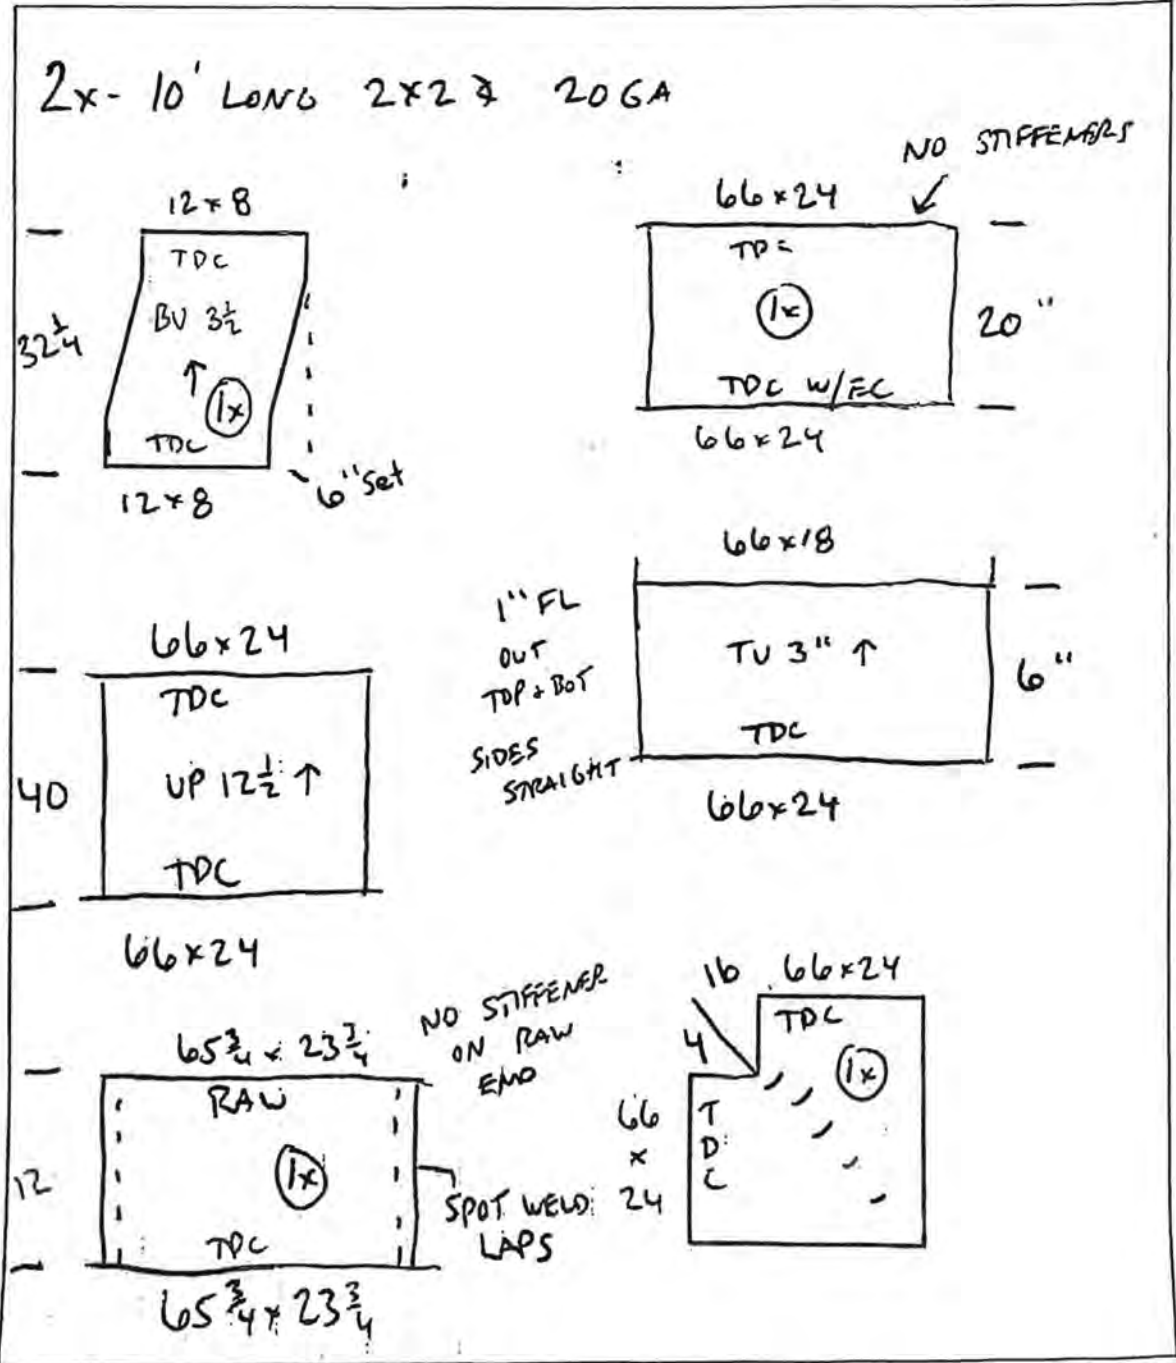 2x- 10' LONG 2x2 20GA
12x8
TDC
BU 3½
↑
1x
TDC
12x8
32¼
6" Set
NO STIFFENERS
66x24
TDC
1x
TDC W/EC
66x24
20"
66x24
TDC
UP 12½ ↑
TDC
66x24
40
66x18
1" FL
OUT
TOP & BOT
SIDES
STRAIGHT
TU 3" ↑
TDC
66x24
6"
65¾ x 23¾
RAW
1x
TDC
65¾ x 23¾
12
NO STIFFENER
ON RAW
END
SPOT WELD
LAPS
16
4
66x24
TDC
1x
66
x
24
T
D
C